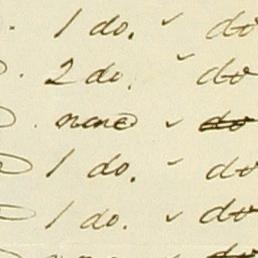 1 do. ✓ do
2 do. ✓ do
none ✓ do
1 do. ✓ do
1 do. ✓ do